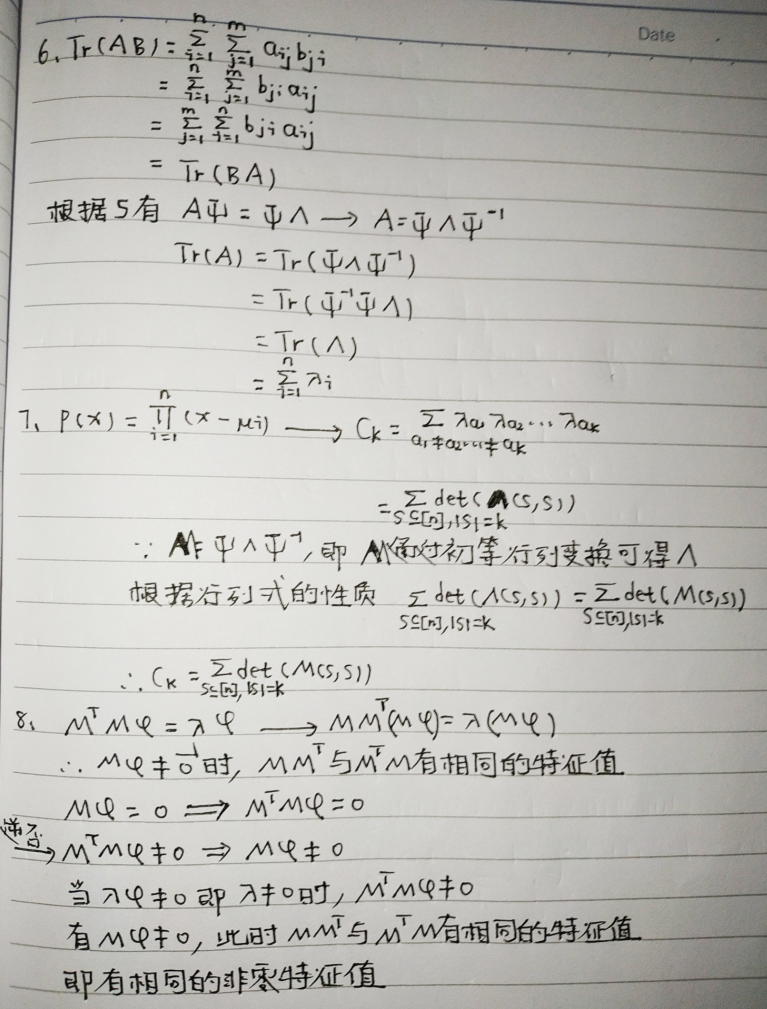 Date
6. Tr(AB) = \sum_{i=1}^{n} \sum_{j=1}^{m} a_{ij} b_{ji}
= \sum_{i=1}^{n} \sum_{j=1}^{m} b_{ji} a_{ij}
= \sum_{j=1}^{m} \sum_{i=1}^{n} b_{ji} a_{ij}
= Tr(BA)
根据5有 AΨ = ΨΛ → A = ΨΛΨ^{-1}
Tr(A) = Tr(ΨΛΨ^{-1})
= Tr(Ψ^{-1}ΨΛ)
= Tr(Λ)
= \sum_{i=1}^{n} λ_i
7. P(x) = \prod_{i=1}^{n} (x - μ_i) → C_k = \sum_{a_1≠a_2...≠a_k} λ_{a_1} λ_{a_2} ... λ_{a_k}
= \sum_{S⊆[n],|S|=k} det(Λ(S,S))
∵ M = ΨΛΨ^{-1}, 即 M通过初等行列变换可得Λ
根据行列式的性质 \sum_{S⊆[n],|S|=k} det(Λ(S,S)) = \sum_{S⊆[n],|S|=k} det(M(S,S))
∴ C_k = \sum_{S⊆[n],|S|=k} det(M(S,S))
8. M^T Mφ = λφ → MM^T(Mφ) = λ(Mφ)
∴ Mφ ≠ \vec{0} 时, MM^T 与 M^T M 有相同的特征值
Mφ = 0 ⟹ M^T Mφ = 0
逆否→ M^T Mφ ≠ 0 ⇒ Mφ ≠ 0
当 λφ ≠ 0 即 λ ≠ 0 时, M^T Mφ ≠ 0
有 Mφ ≠ 0, 此时 MM^T 与 M^T M 有相同的特征值
即有相同的非零特征值